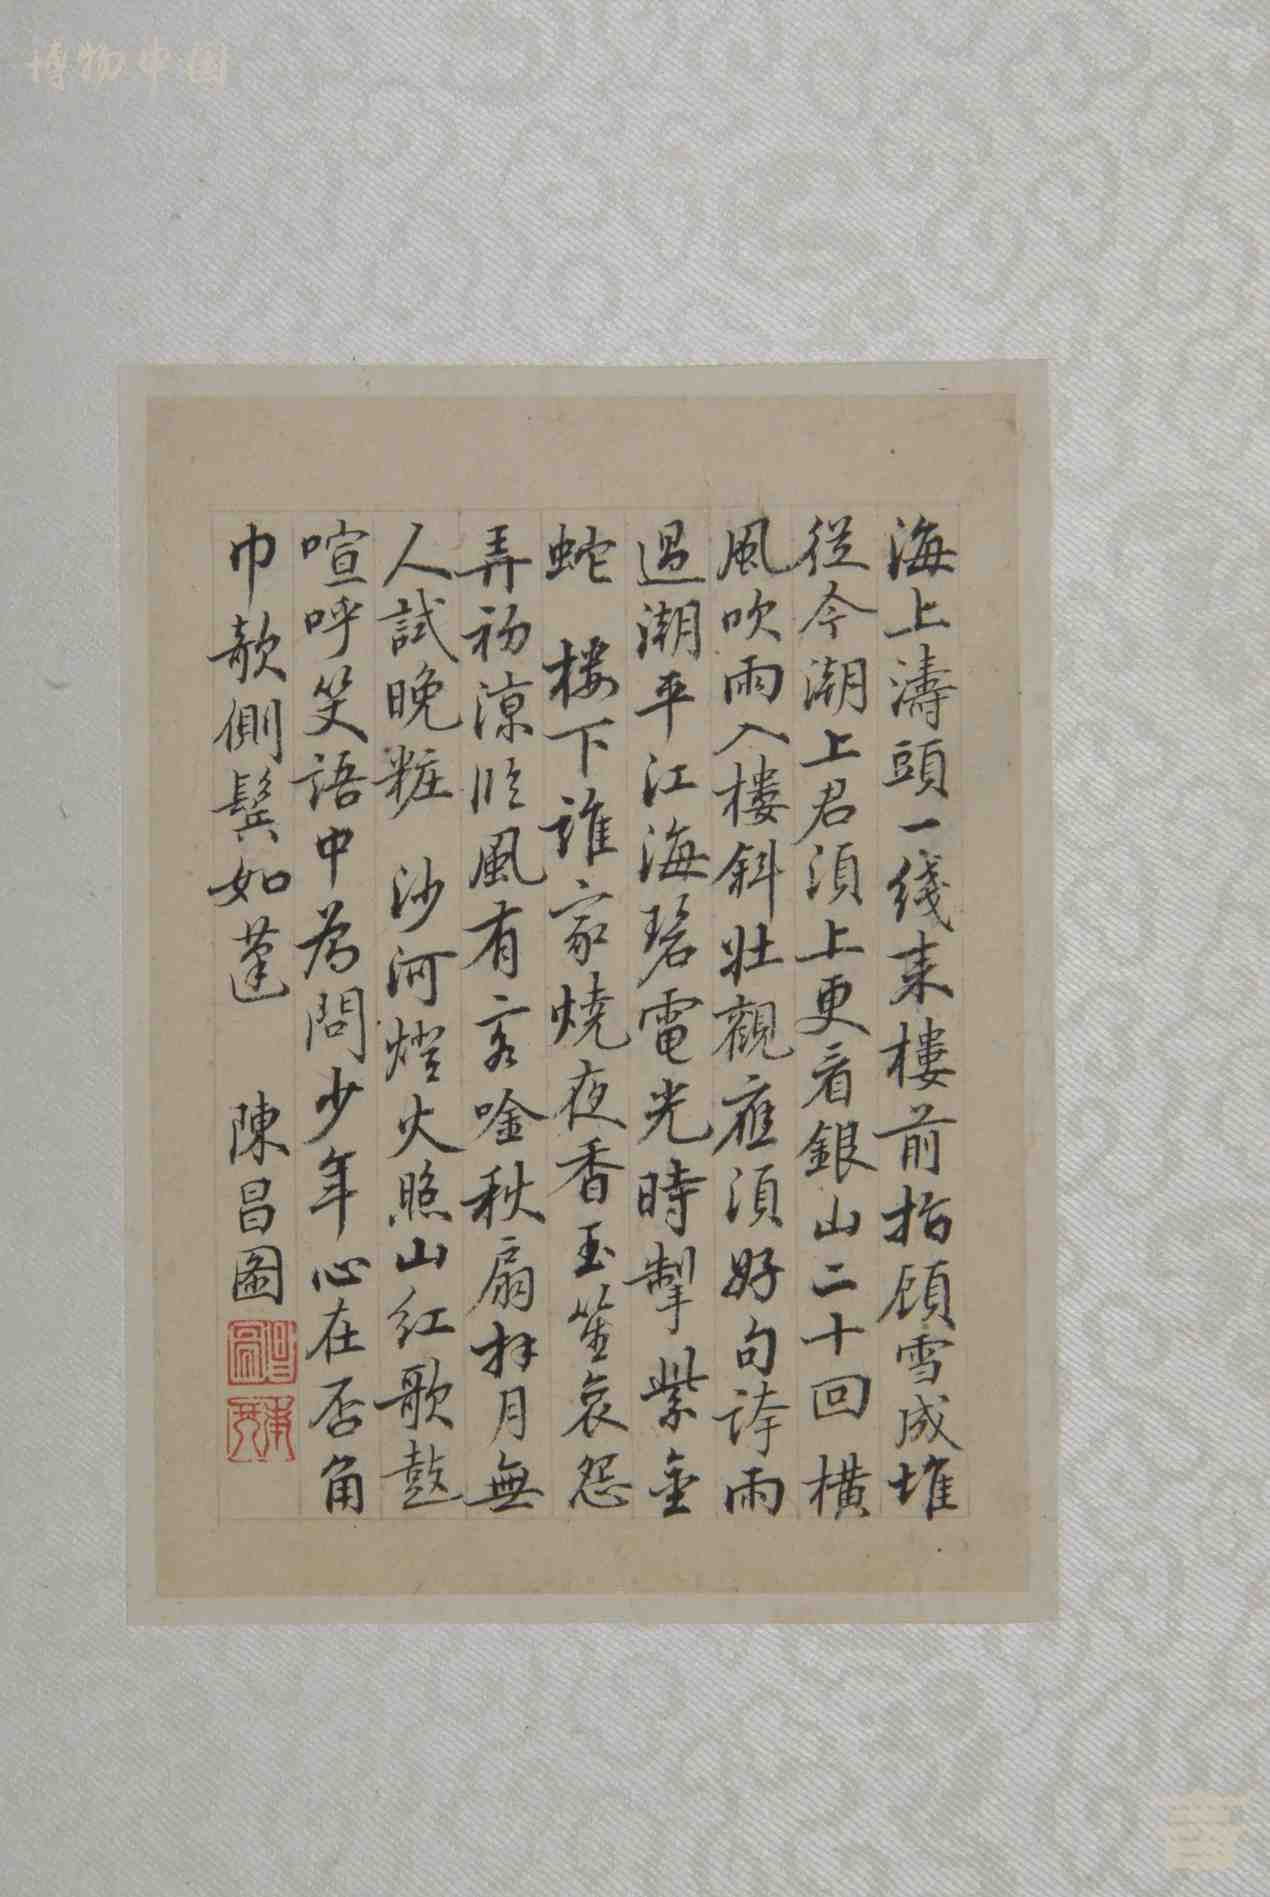 博物中国
海上濤頭一綫来樓前指顧雪成堆
從今潮上君須上更看銀山二十回橫
風吹雨入樓斜壯觀應須好句誇雨
過潮平江海碧電光時掣紫金
蛇 楼下誰家燒夜香玉笙哀怨
弄初涼臨風有客唫秋扇拜月無
人試晚粧 沙河燈火照山紅歌鼓
喧呼笑語中為問少年心在否角
巾欹側鬂如蓬 陳昌圖